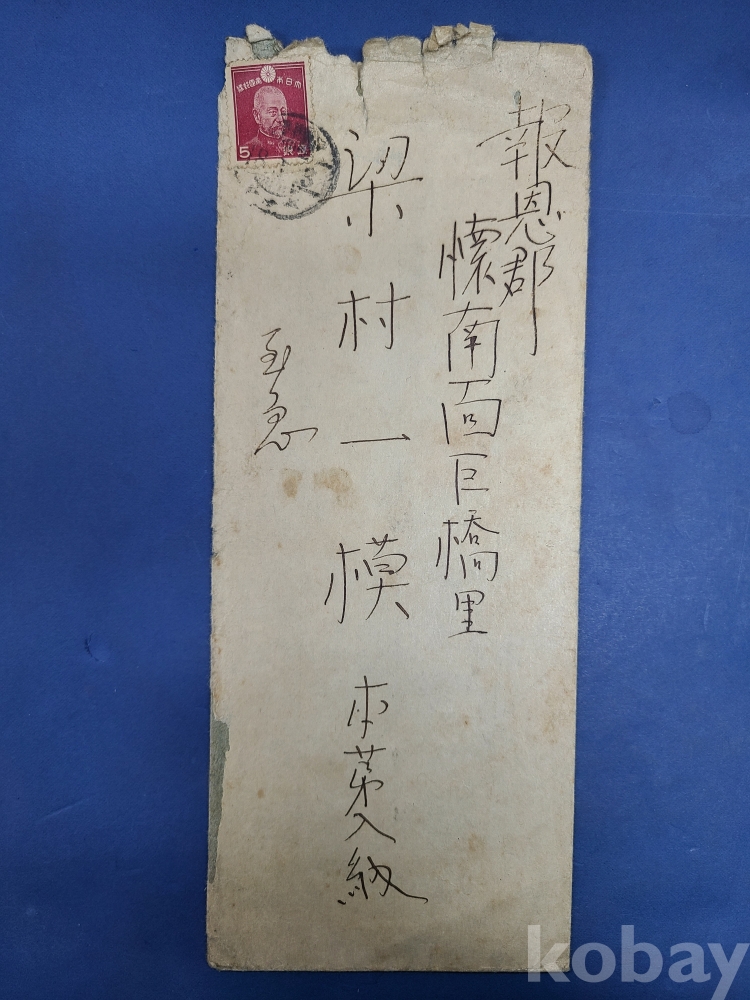 報恩郡
懐南面巨橋里
梁村一模 本苐入納
至急
大日本帝國郵便
5
kobay